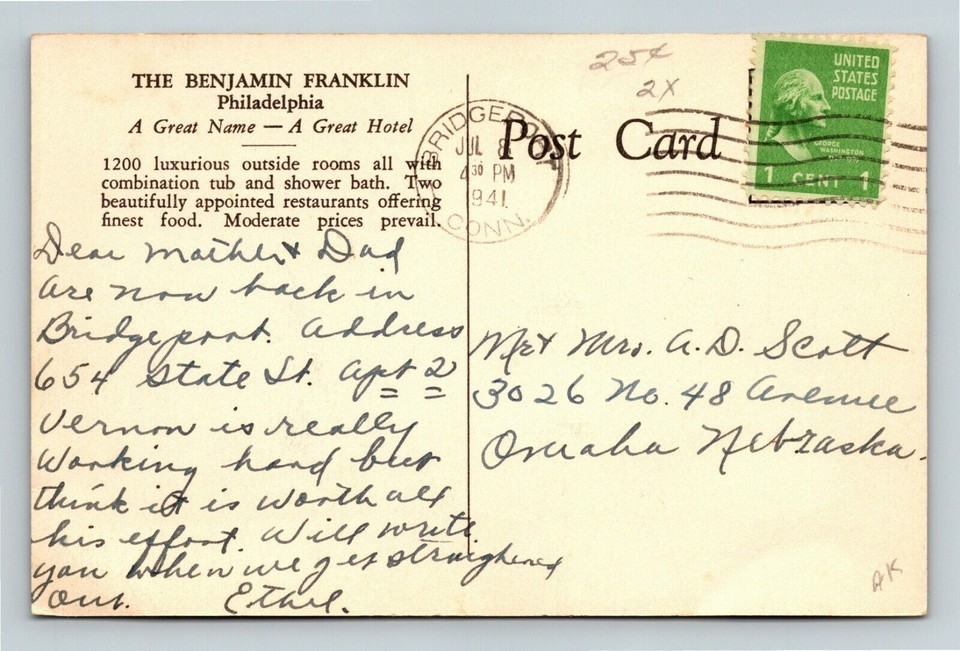 THE BENJAMIN FRANKLIN
Philadelphia
A Great Name — A Great Hotel
1200 luxurious outside rooms all with
combination tub and shower bath. Two
beautifully appointed restaurants offering
finest food. Moderate prices prevail.
Dear Mother & Dad
are now back in
Bridgeport. Address
654 State St. Apt 2
Vernon is really
working hard but
think it is worth all
his effort. Will write
you when we get straighened
out. Ethel.
25¢
2X
BRIDGEPORT
JUL 8
4 30 PM
1941
CONN.
Post Card
UNITED
STATES
POSTAGE
GEORGE
WASHINGTON
1 CENT 1
Mr & Mrs. A. D. Scott
3026 No. 48 Avenue
Omaha Nebraska.
AK